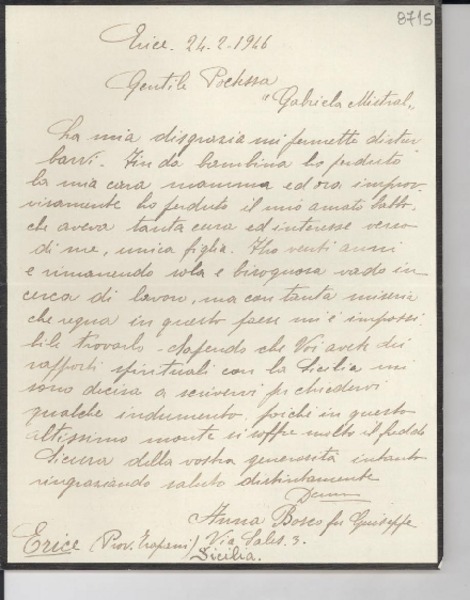 8715
Erice. 24-2-1946
Gentile Poetessa
"Gabriela Mistral"
La mia disgrazia mi permette distur
barvi. Fin da bambina ho perduto
la mia cara mamma ed ora improv-
visamente ho perduto il mio amato babbo,
che aveva tanta cura ed interesse verso
di me, unica figlia. Ho venti anni
e rimanendo sola e bisognosa vado in
cerca di lavoro, ma con tanta miseria
che regna in questo paese mi è impossi
bile trovarlo. Sapendo che Voi avete dei
rapporti spirituali con la Sicilia mi
sono decisa a scrivervi per chiedervi
qualche indumento, poichè in questo
altissimo monte si soffre molto il freddo
Sicura della vostra generosità intanto
ringraziando saluto distintamente
Anna Bosco fu Giuseppe
Erice (Prov. Trapani) Via Sales. 3.
Sicilia.